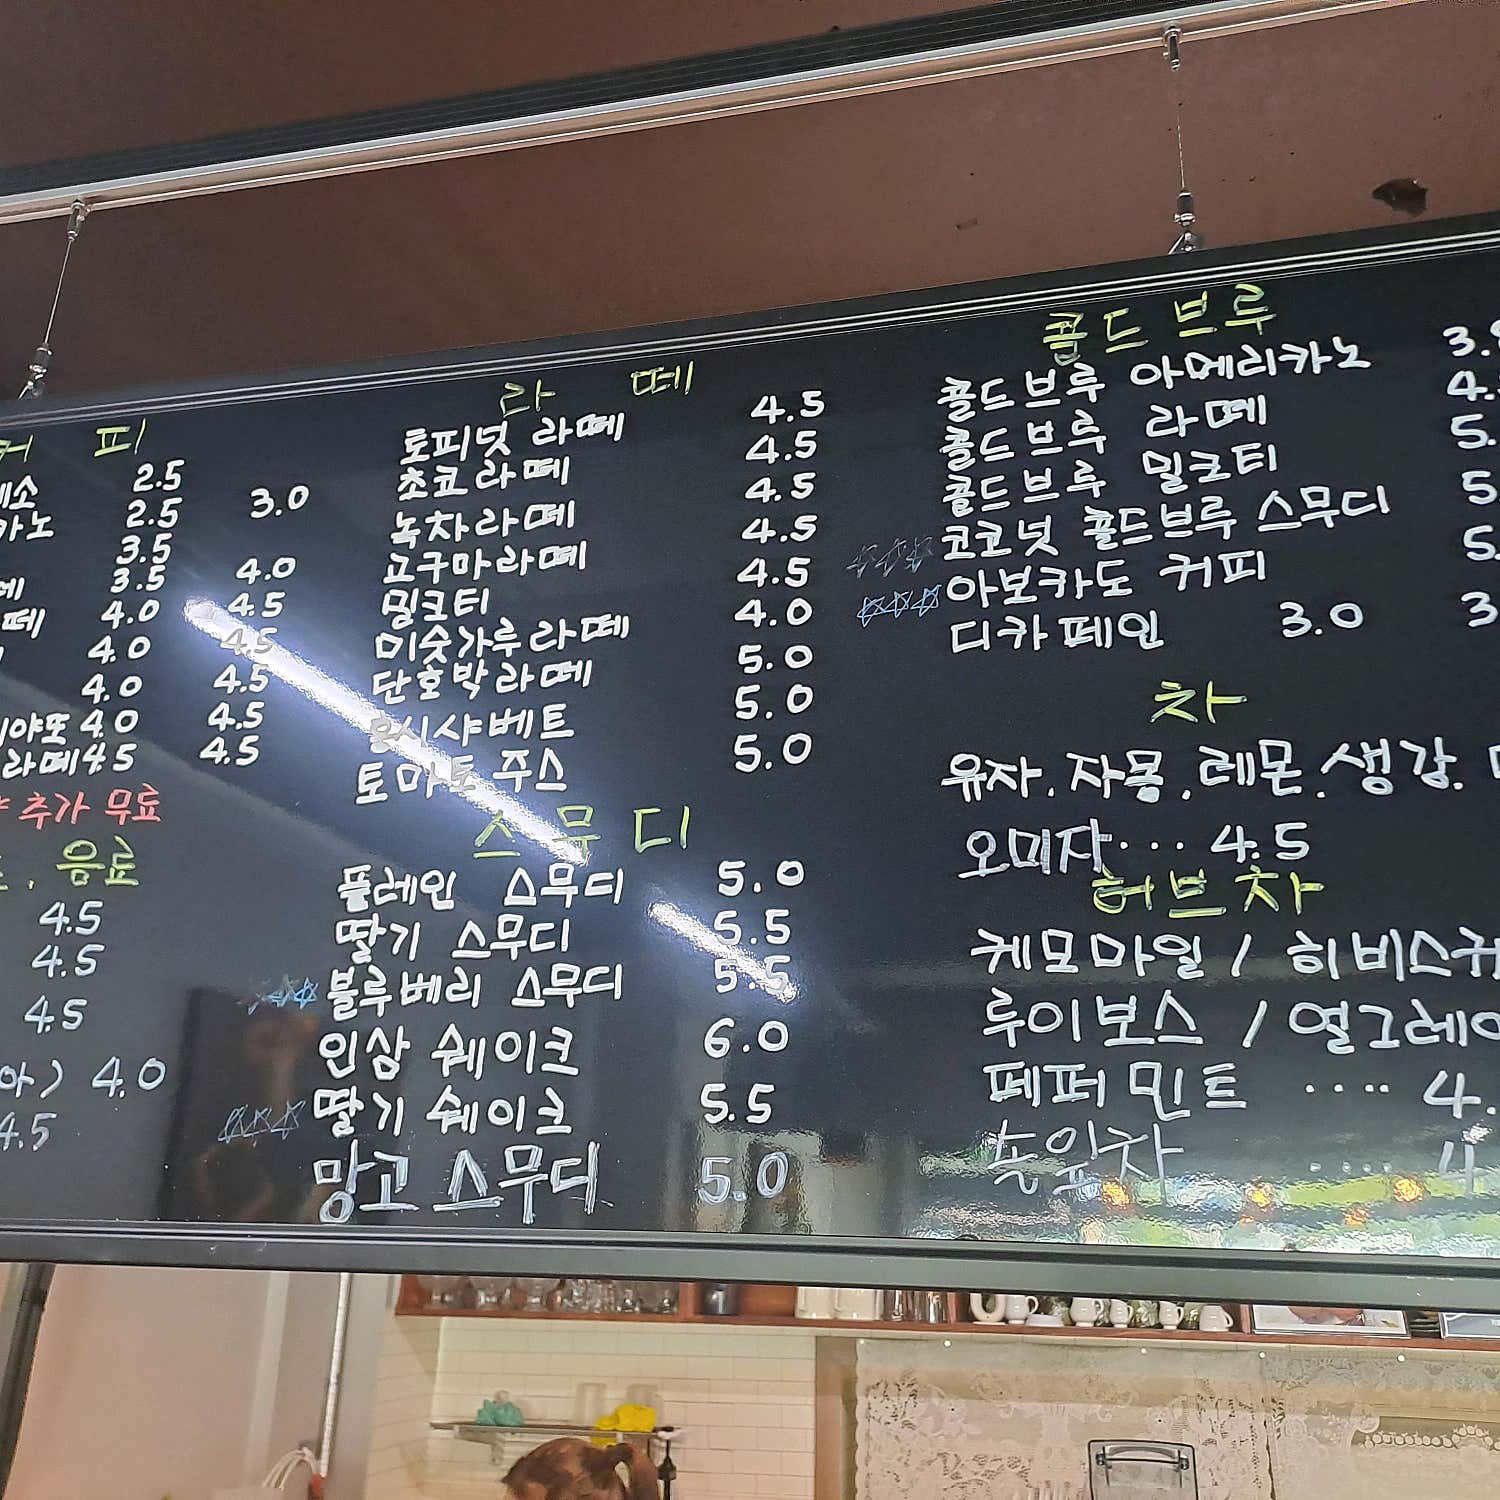 피
2.5
2.5 3.0
3.5
3.5 4.0
4.0 4.5
4.0 4.5
4.0 4.5
4.0 4.5
라떼 4.5 4.5
추가 무료
음료
4.5
4.5
4.5
4.0
4.5
라 떼
토피넛 라떼 4.5
초코라떼 4.5
녹차라떼 4.5
고구마라떼 4.5
밀크티 4.5
미숫가루라떼 4.0
단호박라떼 5.0
홍시샤베트 5.0
토마토 주스 5.0
스 무 디
플레인 스무디 5.0
딸기 스무디 5.5
☆☆☆ 블루베리 스무디 5.5
인삼 쉐이크 6.0
☆☆☆ 딸기 쉐이크 5.5
망고 스무디 5.0
콜드브루
콜드브루 아메리카노
콜드브루 라떼
콜드브루 밀크티
☆☆☆ 코코넛 콜드브루 스무디
☆☆☆ 아보카도 커피
디카페인 3.0
차
유자. 자몽. 레몬. 생강.
오미자 ··· 4.5
허브차
케모마일 / 히비스커
루이보스 / 얼그레이
페퍼민트 ····
손잎차 ····